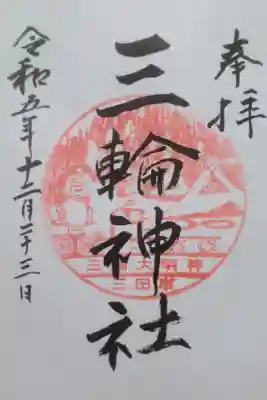 奉拝
三輪神社
令和五年十二月二十三日
三田市